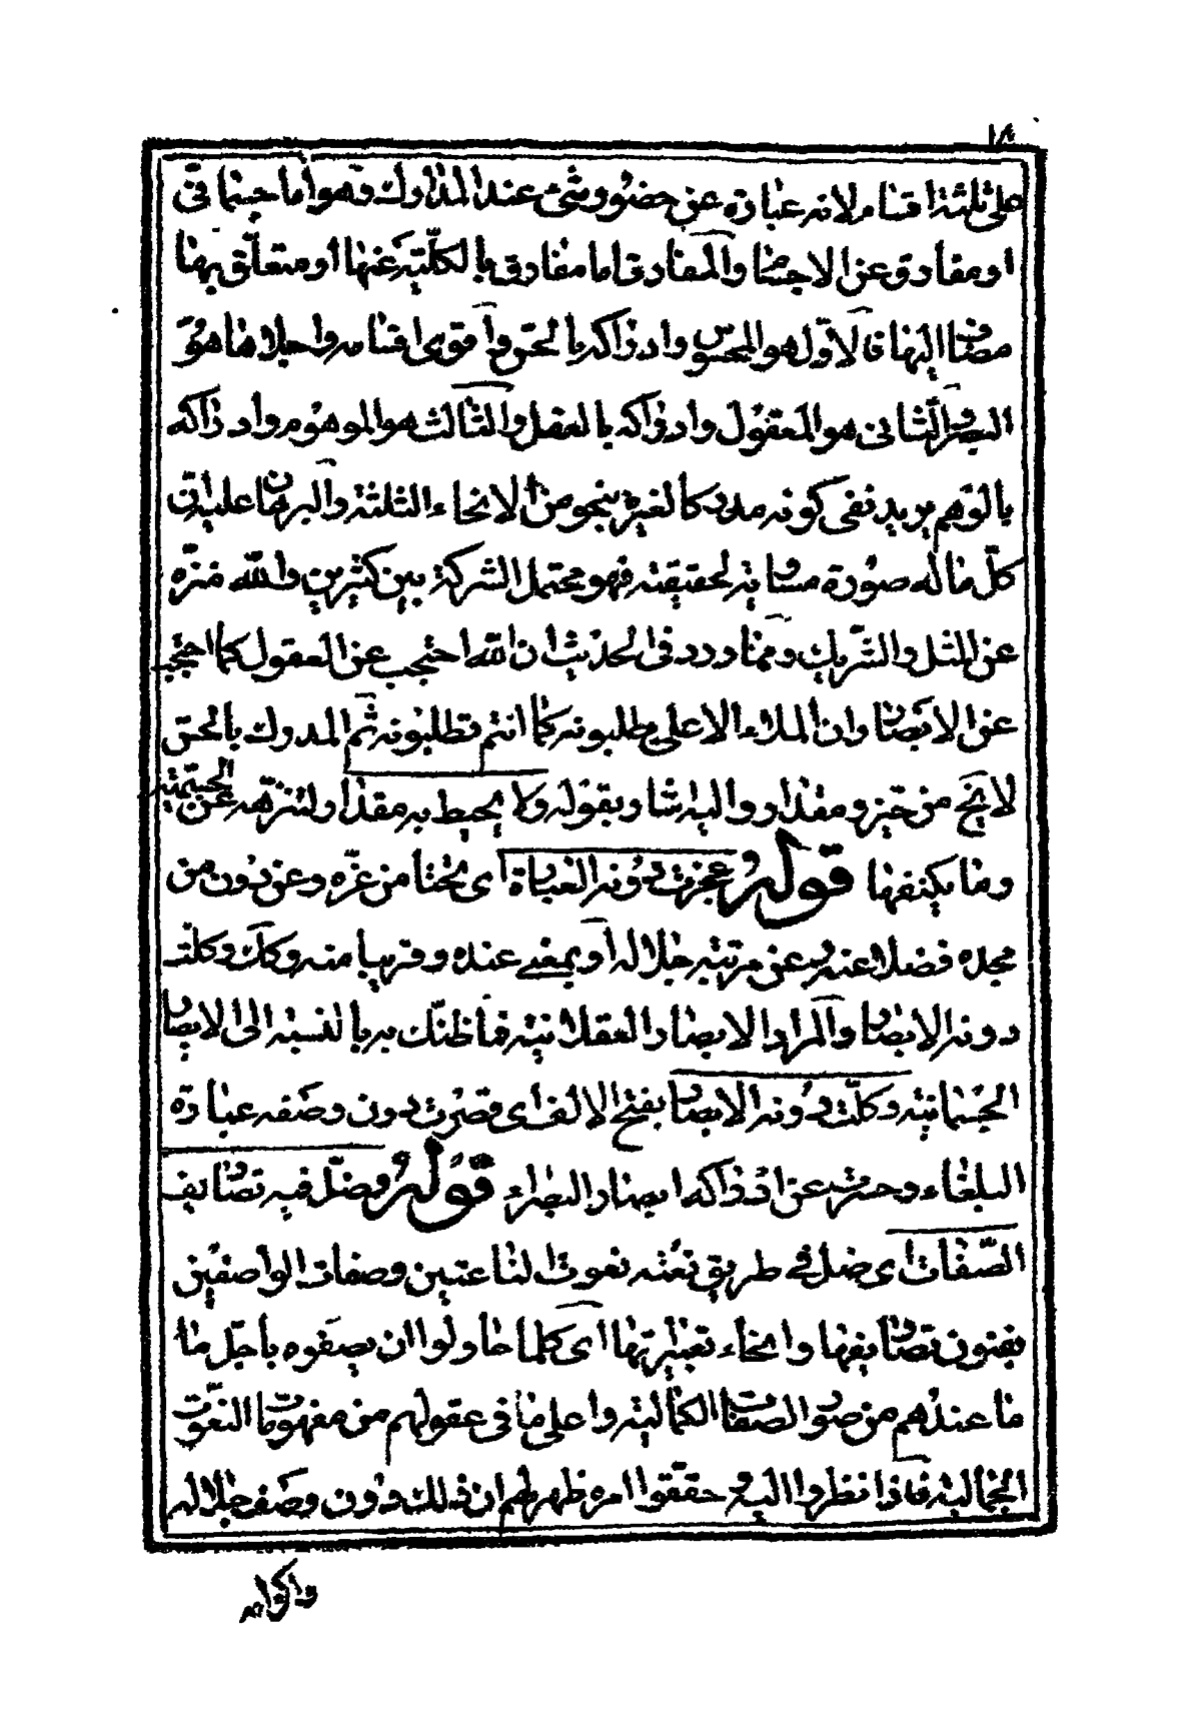 ١٨
على ثلثة اقسام لانه عبارة عن حضور شئ عند المدارك فهو اما جسمانى
او مفارق عن الاجسام والمفارق اما مفارق بالكلية عنها او متعلق بها
مضاف اليها فالاول هو المحسوس وادراكه بالحق واقوى اقسامه واجلاها هو
البصر والثانى هو المعقول وادراكه بالعقل والثالث هو الموهوم وادراكه
بالتوهم يريد نفى كونه مدركا لغيره بنحو من الانحاء الثلثة والبرهان عليه ان
كل ما له صورة مساوية لحقيقته فهو محتمل الشركة بين كثيرين والله منزه
عن المثل والشريك ومما ورد فى الحديث ان الله احتجب عن العقول كما احتجب
عن الابصار وان الملاء الاعلى يطلبونه كما انتم تطلبونه ثم المدرك بالحق
لا يخ من حيز ومقدار واليه اشار بقوله ولا يحيط به مقدار ولتنزهه عن الجسمية
وما يكنفها قوله عجزت دونه العبارة اى تحتا من عزه وعن دون من
مجده فضلا عنه وعن مرتبة جلاله او بمعنى عنده وقريبا منه وكك وكلت
دونه الابصار والمراد الابصار العقلانية فما ظنك به بالنسبة الى الابصار
الجسمانية وكلت دونه الابصار بفتح الالف اى قصرت دون وصفه عبارة
البلغاء وحسرت عن ادراكه ابصار البصراء قوله وضل فيه تصاريف
الصفات اى ضل فى طريق نعته نعوت الناعتين وصفات الواصفين
بفنون تصاريفها وانحاء تعبيراتها اى كلما حاولوا ان يصفوه باجل ما
ما عندهم من صور الصفات الكمالية واعلى ما فى عقولهم من مفهومات النعوت
الجمالية فاذا نظروا اليه وحققوا امره ظهر لهم ان ذلك دون وصف جلاله
واكرامه